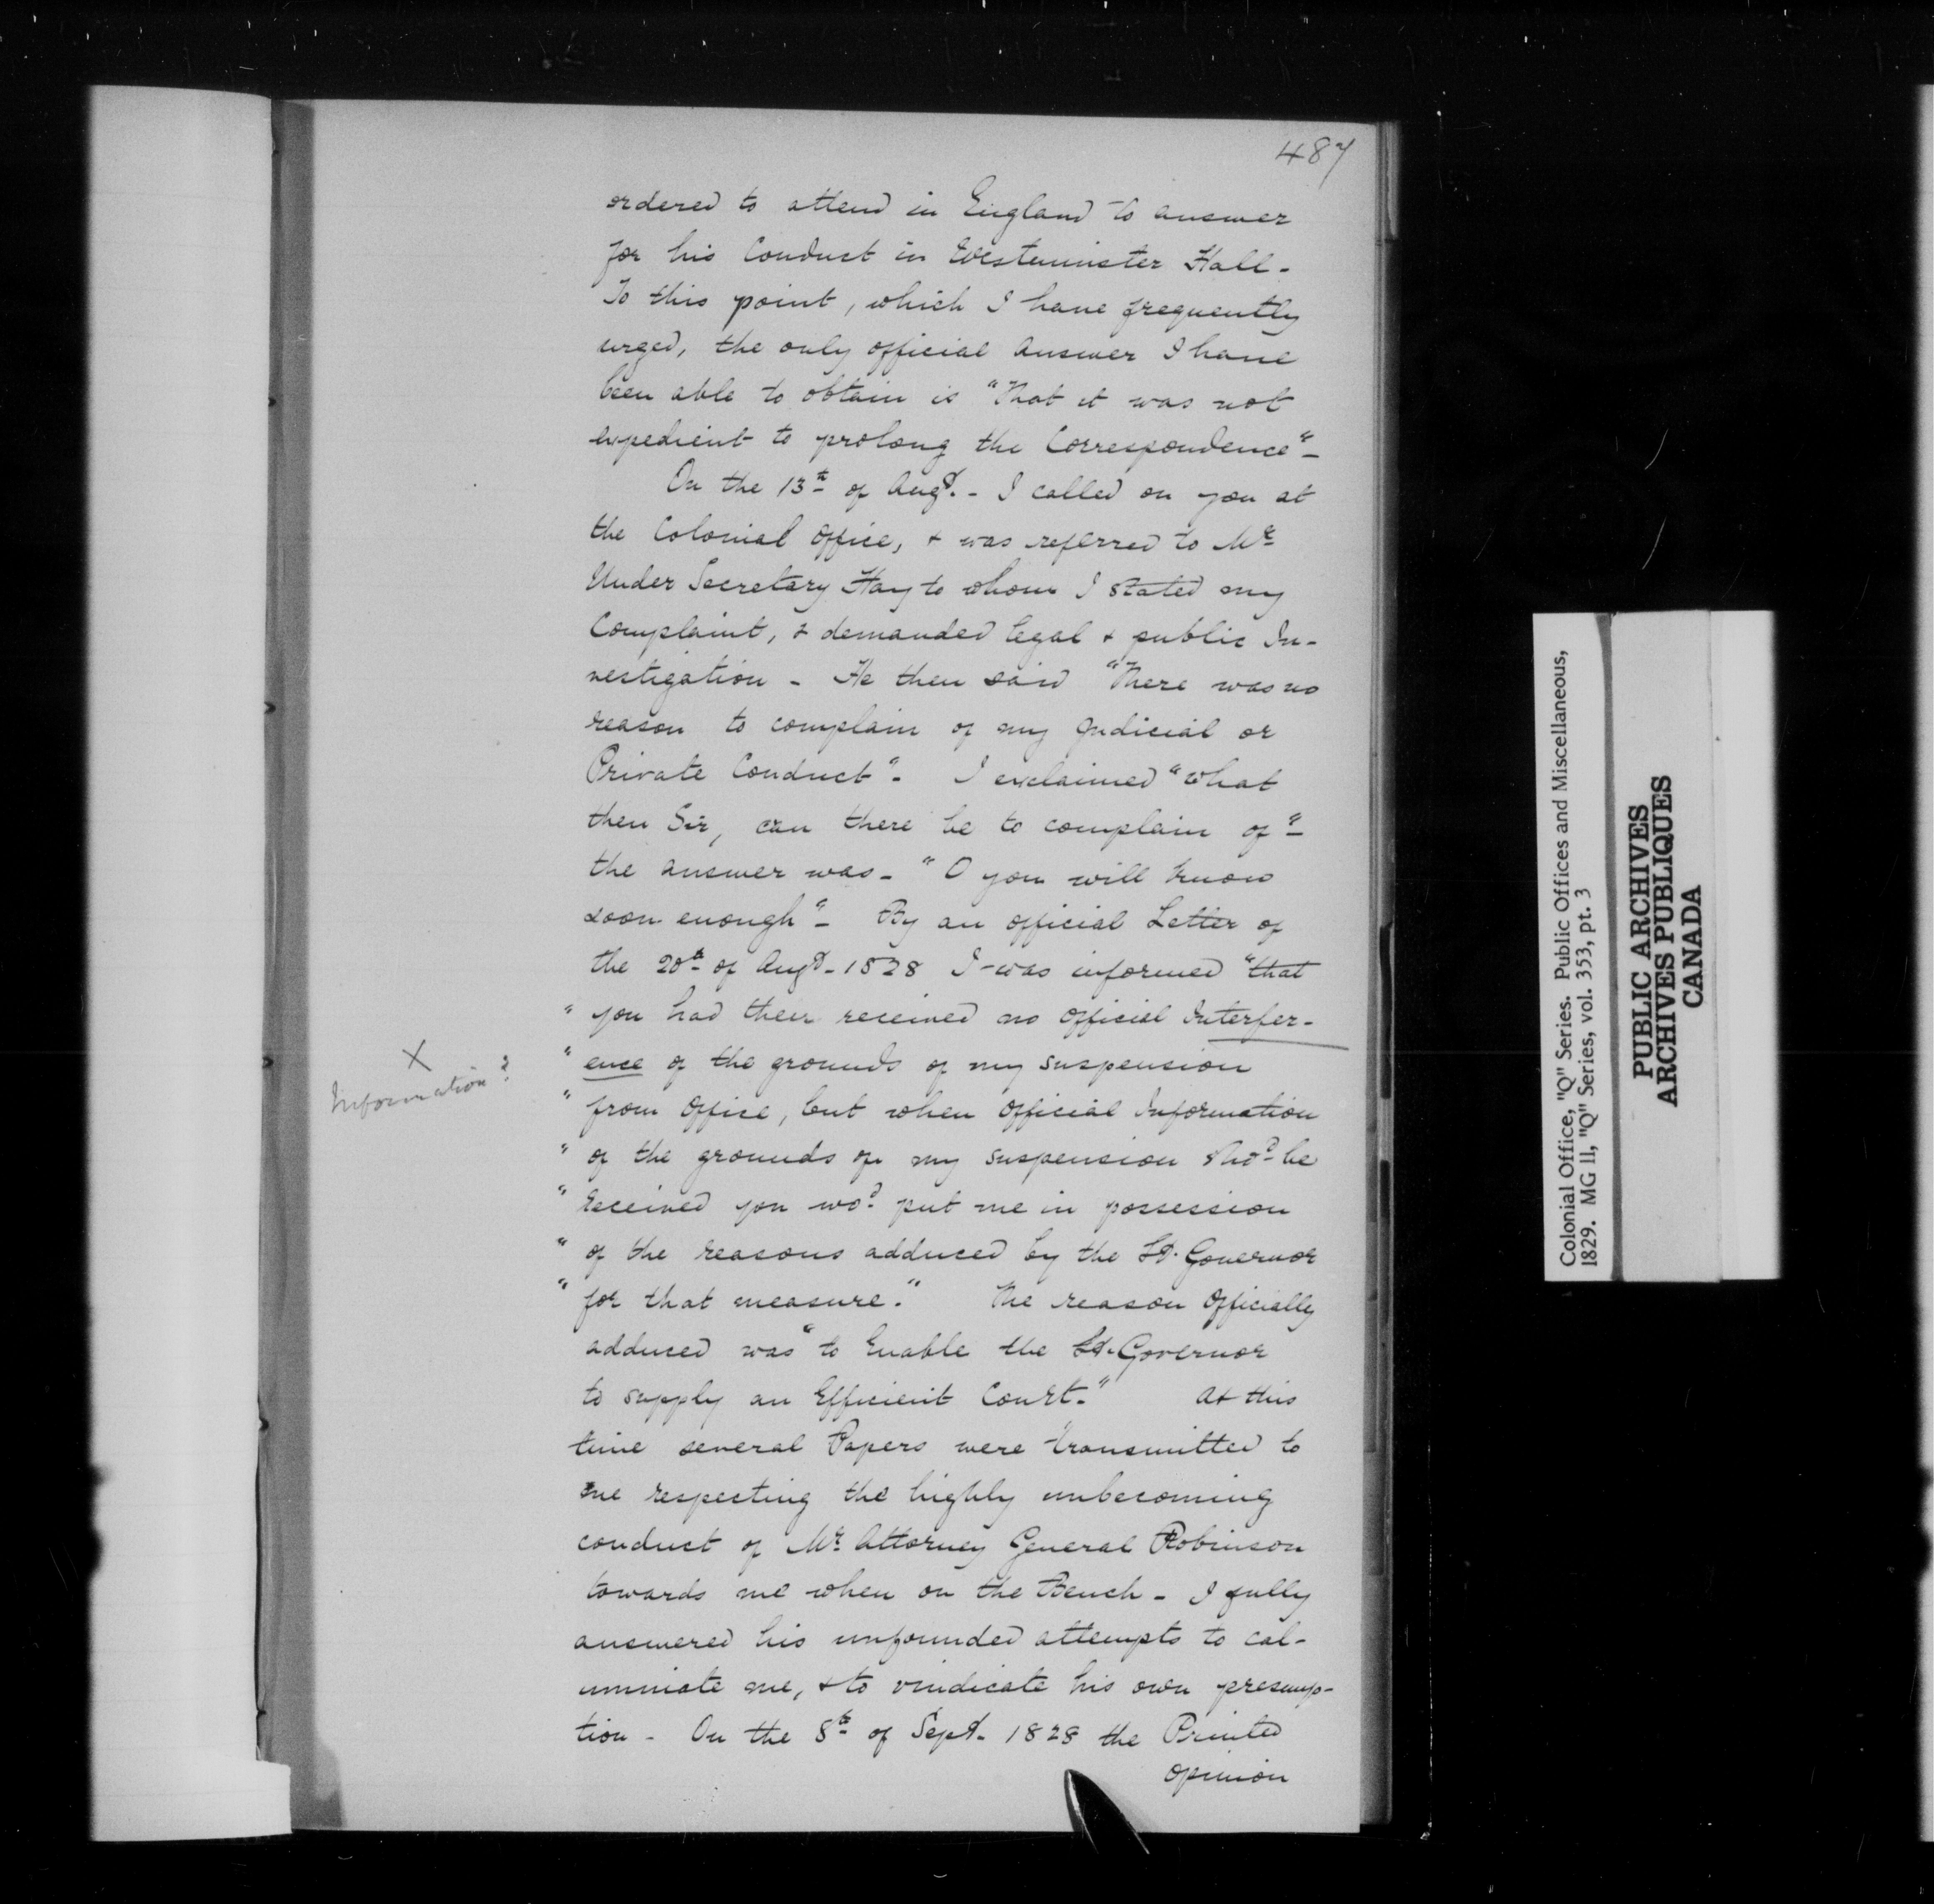 487
ordered to attend in England to answer
for his Conduct in Westminster Hall -
To this point, which I have frequently
urged, the only official Answer I have
been able to obtain is "That it was not
expedient to prolong the Correspondence" -
On the 13th of Augt. - I called on you at
the Colonial Office, + was referred to Mr
Under Secretary Hay to whom I stated my
Complaint, & demanded legal + public In-
vestigation - He then said "There was no
reason to complain of my Judicial or
Private Conduct" - I exclaimed "What
then Sir, can there be to complain of" -
the answer was - "O you will know
soon enough" - By an official Letter of
the 20th of Augt - 1828 I was informed "that
" you had then received no Official Interfer-
" ence of the grounds of my suspension
X
Information?
" from Office, but when Official Information
" of the grounds of my suspension shod be
" received you wod put me in possession
" of the reasons adduced by the Lt. Governor
" for that measure." The reason Officially
adduced was "to Enable the Lt. Governor
to supply an Efficient Court." At this
time several Papers were transmitted to
me respecting the highly unbecoming
conduct of Mr Attorney General Robinson
towards me when on the Bench - I fully
answered his unfounded attempts to cal-
umniate me, + to vindicate his own presump-
tion - On the 8th of Sept. 1828 the Printed
Opinion
Colonial Office, "Q" Series. Public Offices and Miscellaneous,
1829. MG 11, "Q" Series, vol. 353, pt. 3
PUBLIC ARCHIVES
ARCHIVES PUBLIQUES
CANADA